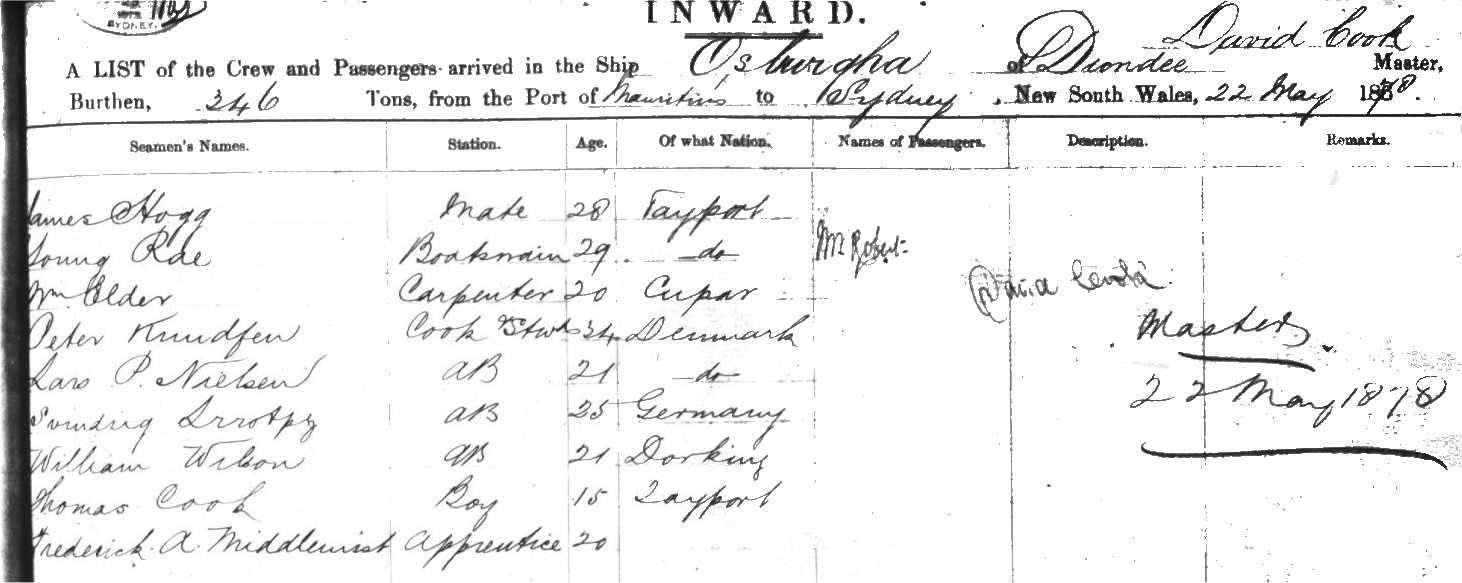 SYDNEY.
INWARD.
David Cook
A LIST of the Crew and Passengers arrived in the Ship Osburgha of Dundee Master,
Burthen, 346 Tons, from the Port of Mauritius to Sydney, New South Wales, 22 May 1878.
Seamen's Names. Station. Age. Of what Nation. Names of Passengers. Description. Remarks.
James Hogg Mate 28 Tayport
Young Rae Boatswain 29 do
Mr Robert
Wm Elder Carpenter 20 Cupar
Peter Knudsen Cook & Stwd 34 Denmark
Master
Lars P. Nielsen AB 21 do
22 May 1878
AB 25 Germany
William Wilson AB 21 Dorking
Thomas Cook Boy 15 Tayport
Frederick A. Middlemist Apprentice 20